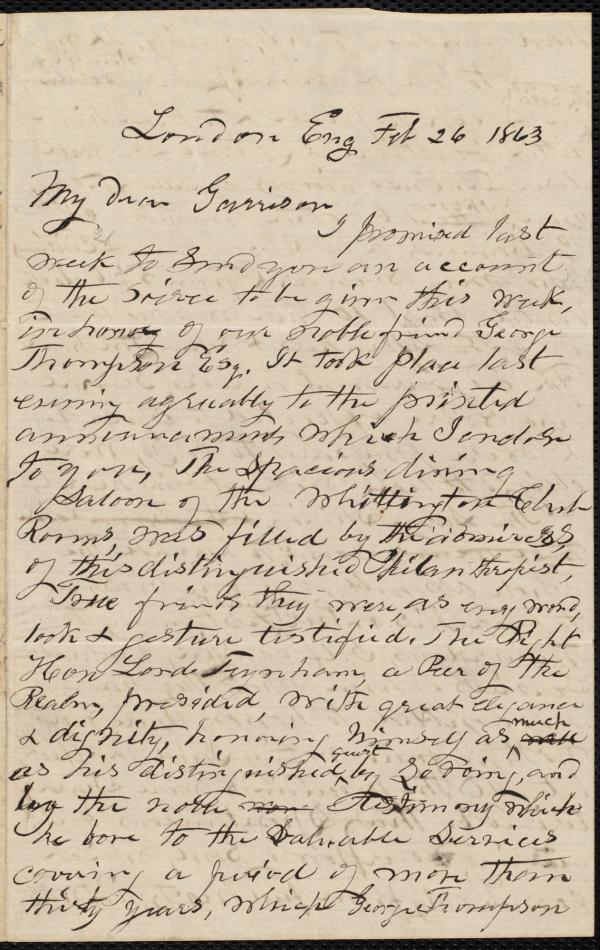 London Eng Feb 26 1863
My dear Garrison
I promised last
week to send you an account
of the soiree to be given this week,
in honor of our noble friend George
Thompson Esq. It took place last
evening agreeably to the printed
announcement which I enclose
to you, The Spacious dining
Saloon of the Whittington Club
Rooms, was filled by the admirers,
of this distinguished Philanthropist,
True friends they were, as every word,
look & gesture testified. The Right
Hon Lord Teynham, a Peer of the
Realm, presided, with great elegance
& dignity, honoring himself as much
as his distinguished guest, by so doing, and
by the noble testimony which
he bore to the valuable services
covering a period of more than
thirty years, which George Thompson